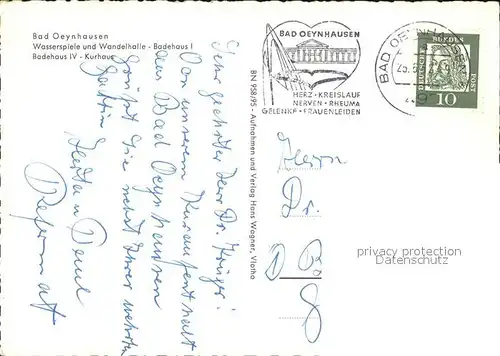 Bad Oeynhausen
Wasserspiele und Wandelhalle - Badehaus I
Badehaus IV - Kurhaus
Sehr geehrter Herr Dr. Krüger!
Von unserem Kuraufenthalt
aus Bad Oeynhausen
grüßt Sie nebst Ihrer werten
Gattin
BN 958/95 · Aufnahmen und Verlag Hans Wagner, Vlotho
BAD OEYNHAUSEN
HERZ · KREISLAUF
NERVEN · RHEUMA
GELENKE · FRAUENLEIDEN
BAD OEYNHAUSEN
DEUTSCHE BUNDESPOST
10
Herrn
Dr.
D B
8
privacy protection
Datenschutz